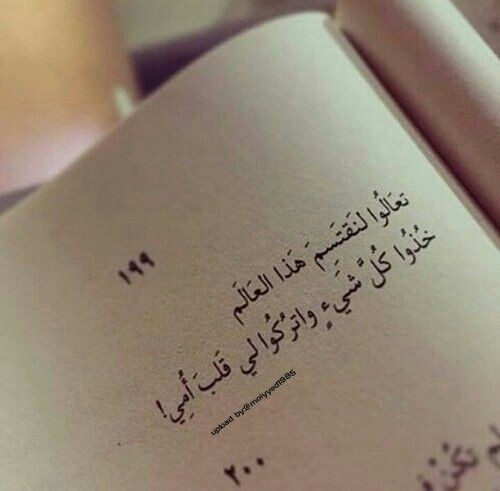 ١٩٩
تَعَالُوا لنَقتَسِمَ هَذا العَالَم
خُذُوا كُلَّ شَيءٍ واترُكُوا لي قَلبَ أُمِي!
upload by:@moiyyed1985
٢٠٠